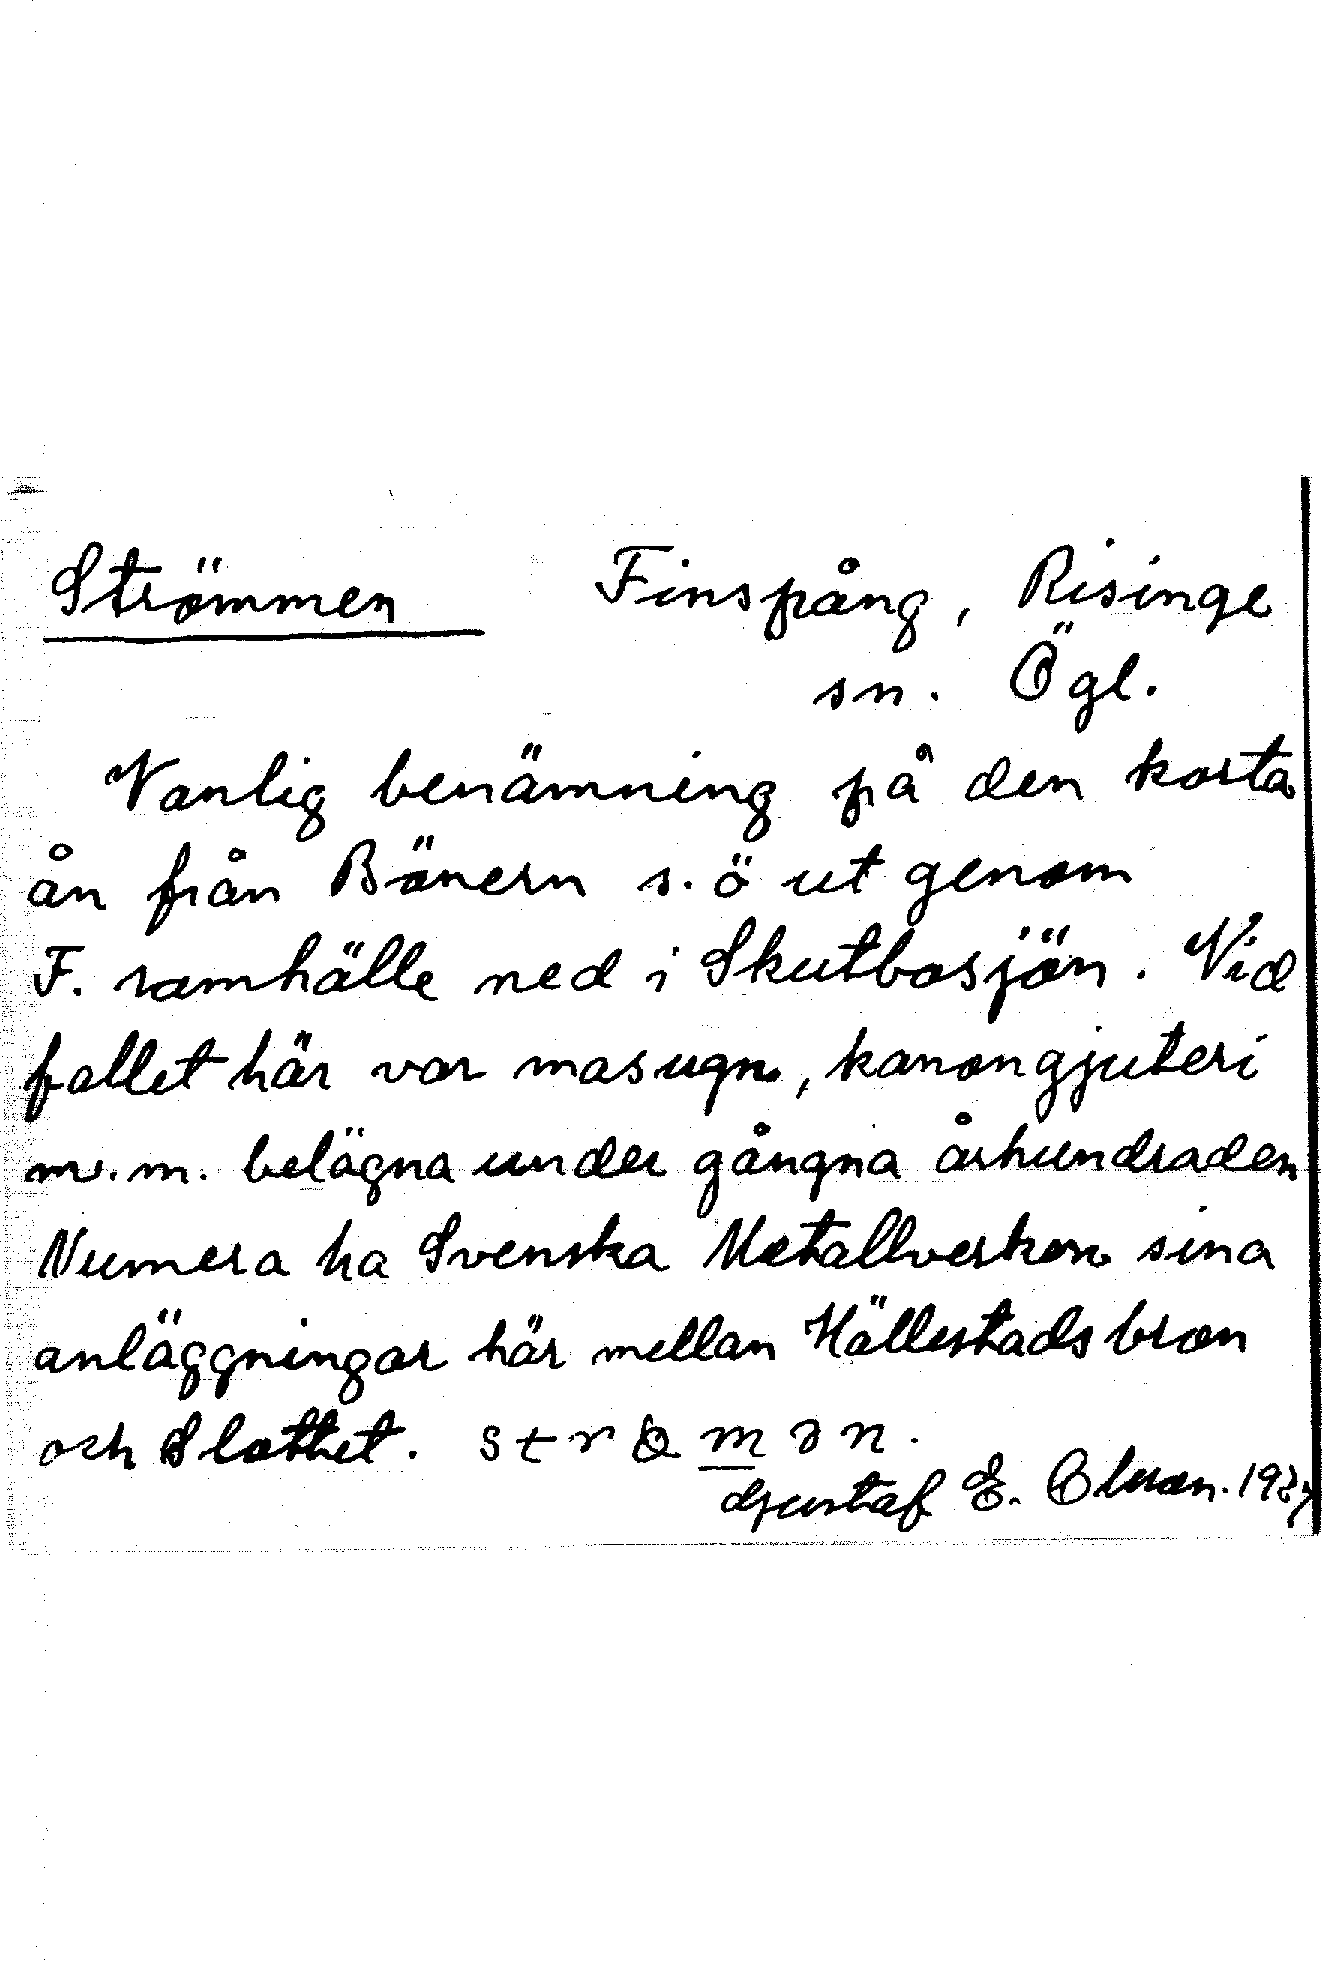 Strömmen Finspång, Risinge
sn. Ögl.
Vanlig benämning på den korta
ån från Bönern s. ö ut genom
F. samhälle ned i Skutbosjön. Vid
fallet här var masugn, kanongjuteri
m. m. belägna under gångna århundraden
Numera ha Svenska Metallverken sina
anläggningar här mellan Hällestadsbron
och Slottet.
Gustaf E. Olsson.